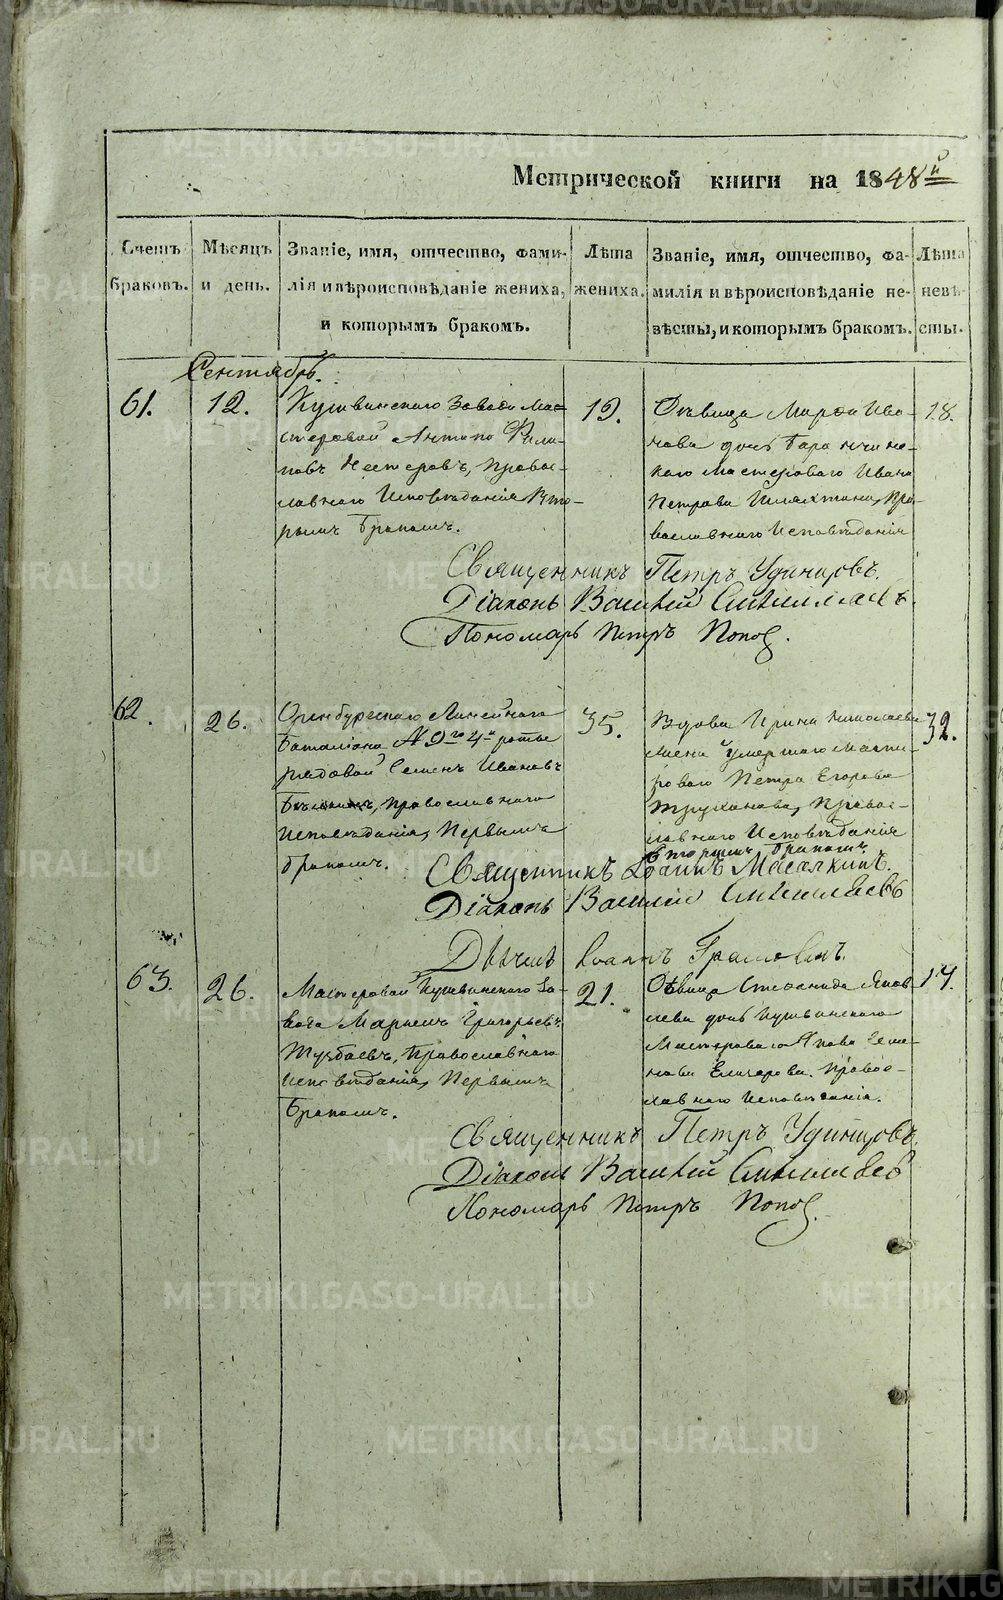 Метрической книги на 1848й
Счетъ браковъ.
Мѣсяцъ и день.
Званіе, имя, отчество, фами-
лія и вѣроисповѣданіе жениха,
и которымъ бракомъ.
Лѣта жениха.
Званіе, имя, отчество, фа-
милія и вѣроисповѣданіе не-
вѣсты, и которымъ бракомъ.
Лѣта невѣ-
сты.
Сентябрь.
61.
12.
Кушвинскаго Завода Мас-
теровой Антипъ Фили-
повъ Нестеровъ, Правос-
лавнаго Исповѣданія Вто-
рымъ Бракомъ.
19.
Дѣвица Марфа Ива-
нова дочь Баранчинс-
каго мастероваго Ивана
Петрова Пра-
вославнаго Исповѣданія
18.
Священникъ Петръ Удинцовъ.
Діаконъ Василій
Пономарь Петръ Попов.
62.
26.
Оренбургскаго Линейнаго
Баталіона № 9го 4й роты
рядовой Семенъ Ивановъ
православнаго
Исповѣданія, Первымъ
бракомъ.
35.
Вдова Ирина Николаева
жена умершаго Масте-
роваго Петра Егорова
Труханова, Правос-
лавнаго Исповѣданія
Вторымъ бракомъ.
32.
Священникъ Іоаннъ
Діаконъ Василій
Дьячекъ Іоаннъ
63.
26.
Мастеровой Кушвинскаго За-
вода Григорьевъ
Православнаго
исповѣданія, Первымъ
Бракомъ.
21.
Дѣвица Стефанида Яков-
лева дочь Кушвинскаго
Мастероваго Якова Семе-
нова Правос-
лавнаго Исповѣданія.
17.
Священникъ Петръ Удинцовъ.
Діаконъ Василій
Пономарь Петръ Попов.
METRIKI.GASO-URAL.RU